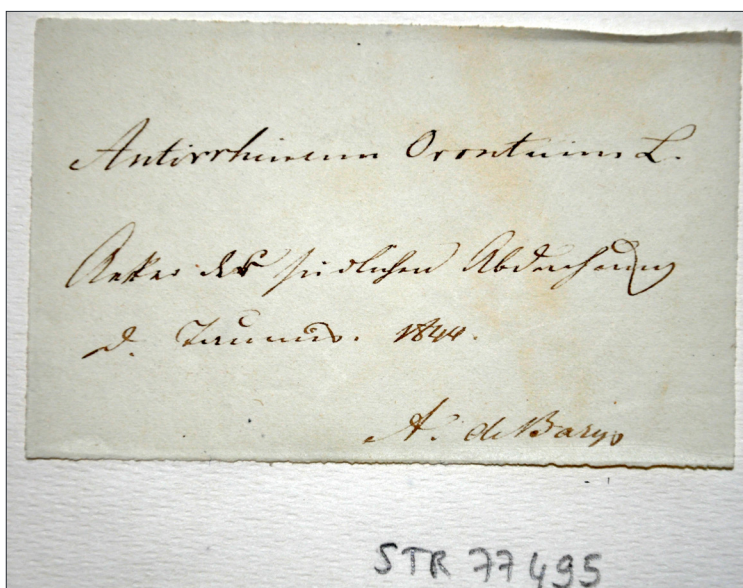 Antirrhinum Orontium L.
Aecker der südlichen Abdachung
d. Taunus. 1844.
A. de Bary
STR 77495